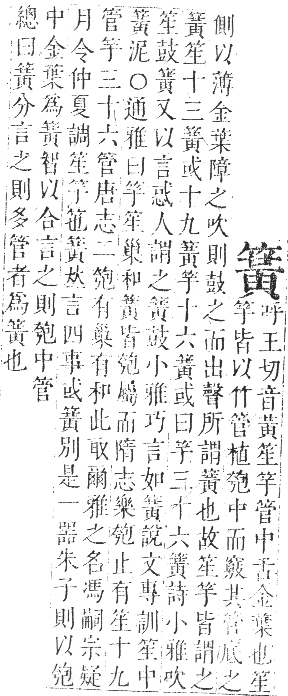 簧呼王切音黃笙竽管中舌金葉也笙
竽皆以竹管植匏中而竅其管底之
側以薄金葉障之吹則鼓之而出聲所謂簧也故笙竽皆謂之
簧笙十三簧或十九簧竽十六簧或曰竽三十六簧詩小雅吹
笙鼓簧又以言惑人謂之簧鼓小雅巧言如簧說文專訓笙中
簧泥○通雅曰竽笙巢和簧皆匏屬而隋志樂匏止有笙十九
管竽三十六管唐志二匏有巢有和此取爾雅之名馮嗣宗疑
月令仲夏調笙竽箎簧㳄言四事或簧別是一器朱子則以匏
中金葉為簧智以合言之則匏中管
總曰簧分言之則多管者為簧也